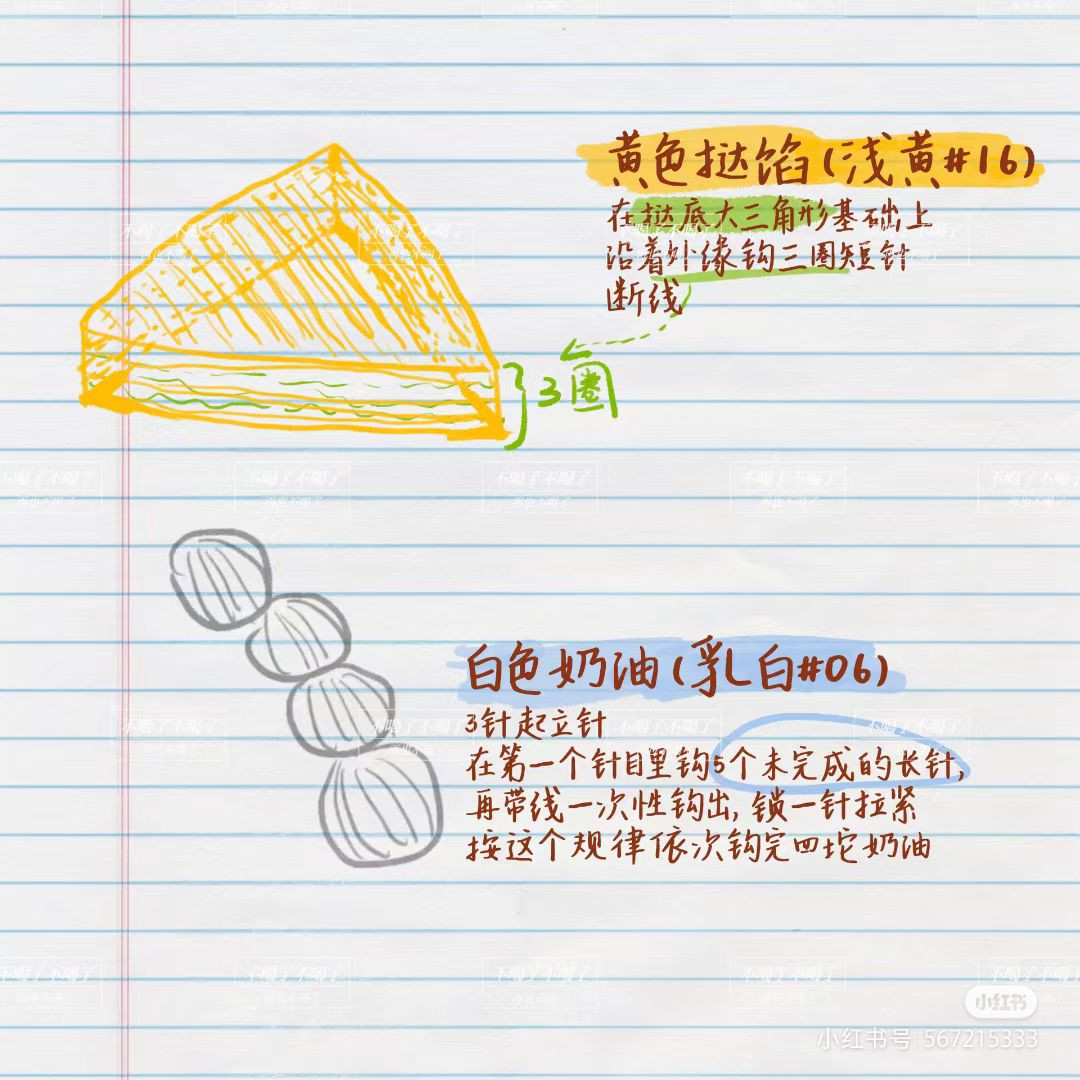 黄色挞馅(浅黄#16)
在挞底大三角形基础上
沿着外缘钩三圈短针
断线
3圈
白色奶油(乳白#06)
3针起立针
在第一个针目里钩5个未完成的长针,
再带线一次性钩出, 锁一针拉紧
按这个规律依次钩完四坨奶油
不喝了不喝了
再也不喝了
小红书
小红书号: 567215333